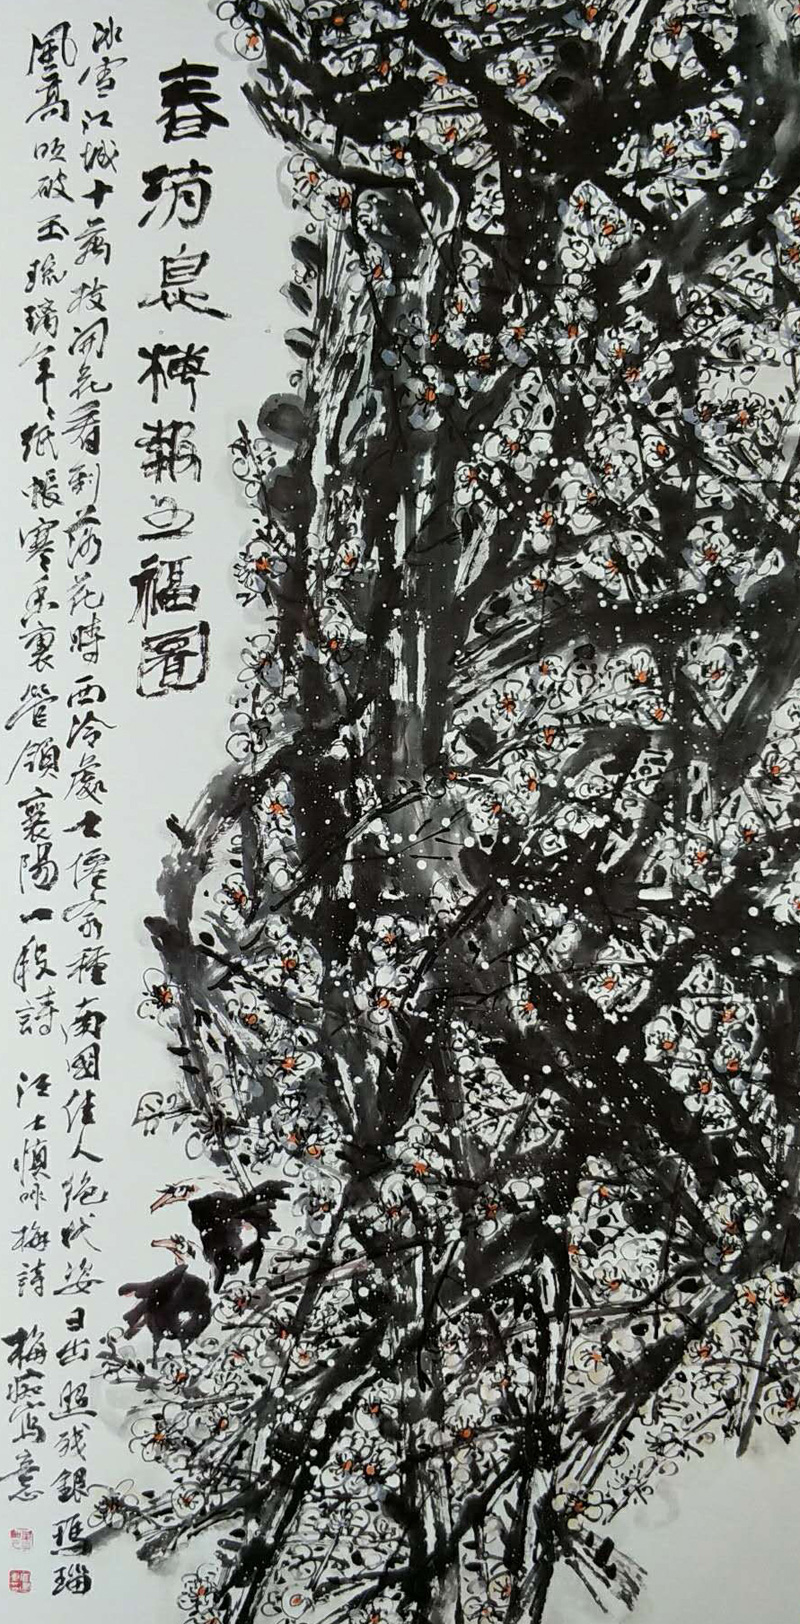 春消息梅報五福圖
冰雪江城十萬枝開花看到落花時西泠處士僊家種南國佳人絕代姿日出照殘銀瑪瑙
風高吹破玉琉璃年〻紙帳寒香裏管領襄陽一段詩 汪士慎咏梅詩 梅痴寫意